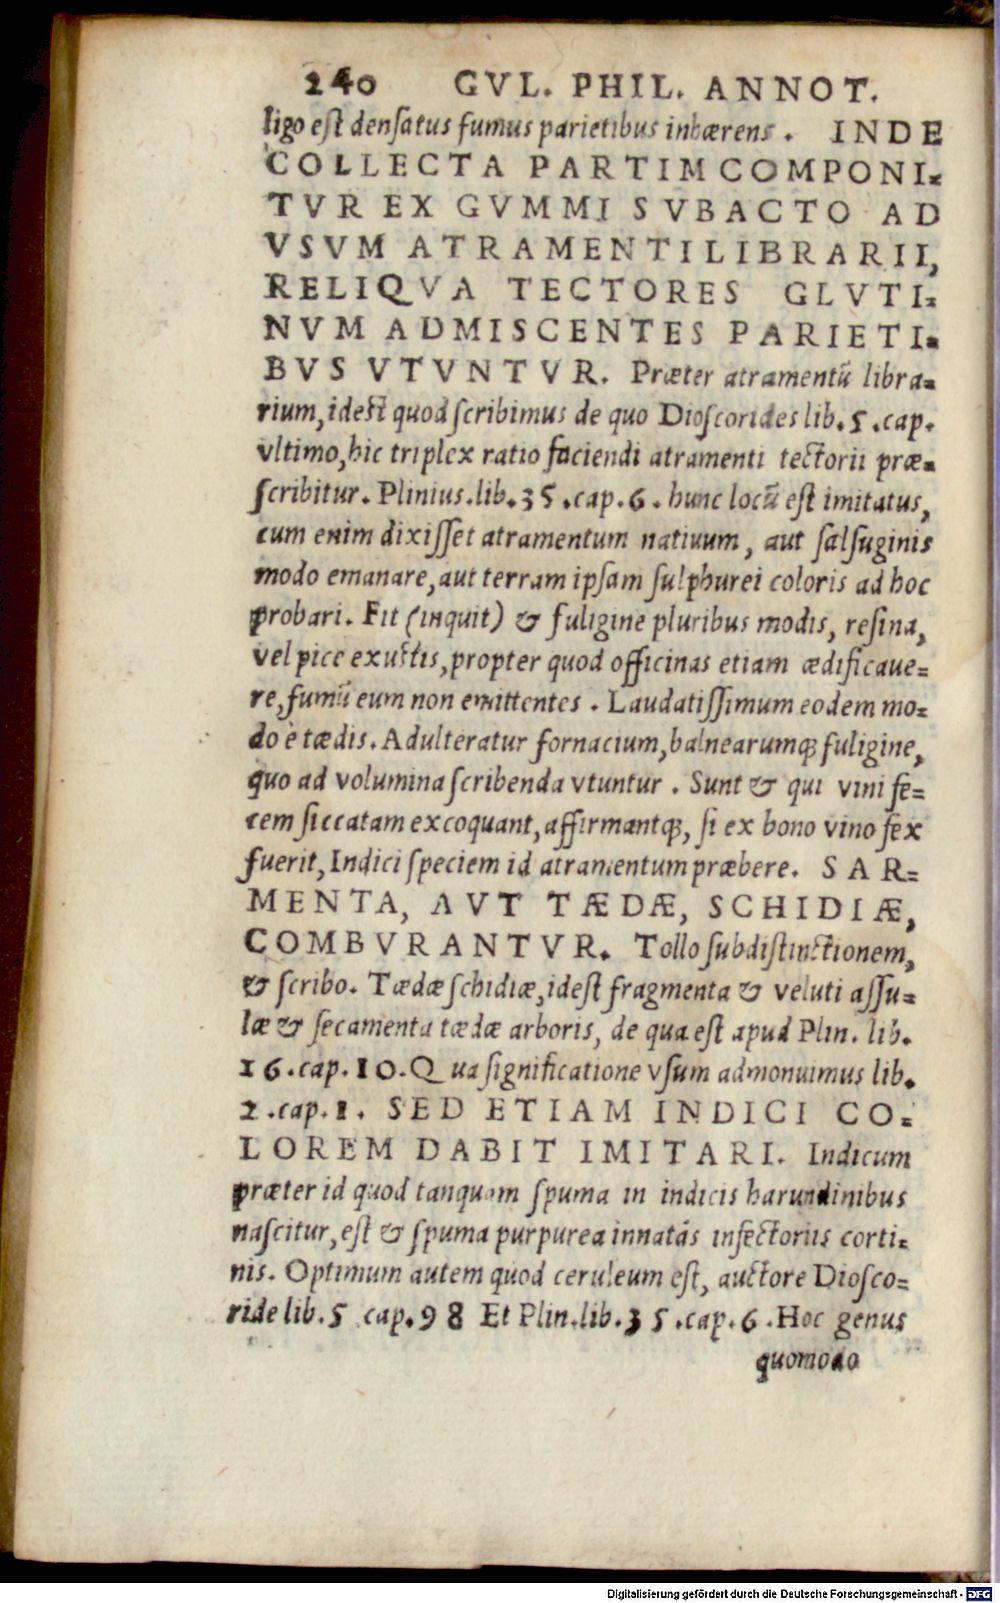 240 GVL. PHIL. ANNOT.
ligo eſt denſatus fumus parietibus inhærens. INDE
COLLECTA PARTIM COMPONI-
TVR EX GVMMI SVBACTO AD
VSVM ATRAMENTI LIBRARII,
RELIQVA TECTORES GLVTI-
NVM ADMISCENTES PARIETI-
BVS VTVNTVR. Præter atramentū libra-
rium, ideſt quod ſcribimus de quo Dioſcorides lib. 5. cap.
vltimo, hic triplex ratio faciendi atramenti tectorii præ-
ſcribitur. Plinius. lib. 35. cap. 6. hunc locū eſt imitatus,
cum enim dixiſſet atramentum natiuum, aut ſalſuginis
modo emanare, aut terram ipſam ſulphurei coloris ad hoc
probari. Fit (inquit) & fuligine pluribus modis, reſina,
vel pice exuctis, propter quod officinas etiam ædificaue-
re, fumū eum non emittentes. Laudatiſſimum eodem mo-
do è tædis. Adulteratur fornacium, balnearumq; fuligine,
quo ad volumina ſcribenda vtuntur. Sunt & qui vini fe-
cem ſiccatam excoquant, affirmantq;, ſi ex bono vino fex
fuerit, Indici ſpeciem id atramentum præbere. SAR-
MENTA, AVT TÆDÆ, SCHIDIÆ,
COMBVRANTVR. Tollo ſubdiſtinctionem,
& ſcribo. Tædæ ſchidiæ, ideſt fragmenta & veluti aſſu-
læ & ſecamenta tædæ arboris, de qua eſt apud Plin. lib.
16. cap. 10. Qua ſignificatione vſum admonuimus lib.
2. cap. 1. SED ETIAM INDICI CO-
LOREM DABIT IMITARI. Indicum
præter id quod tanquam ſpuma in indicis harundinibus
naſcitur, eſt & ſpuma purpurea innatās infectoriis corti-
nis. Optimum autem quod ceruleum eſt, auctore Dioſco-
ride lib. 5 cap. 98 Et Plin. lib. 35. cap. 6. Hoc genus
quomodo
Digitalisierung gefördert durch die Deutsche Forschungsgemeinschaft - DFG